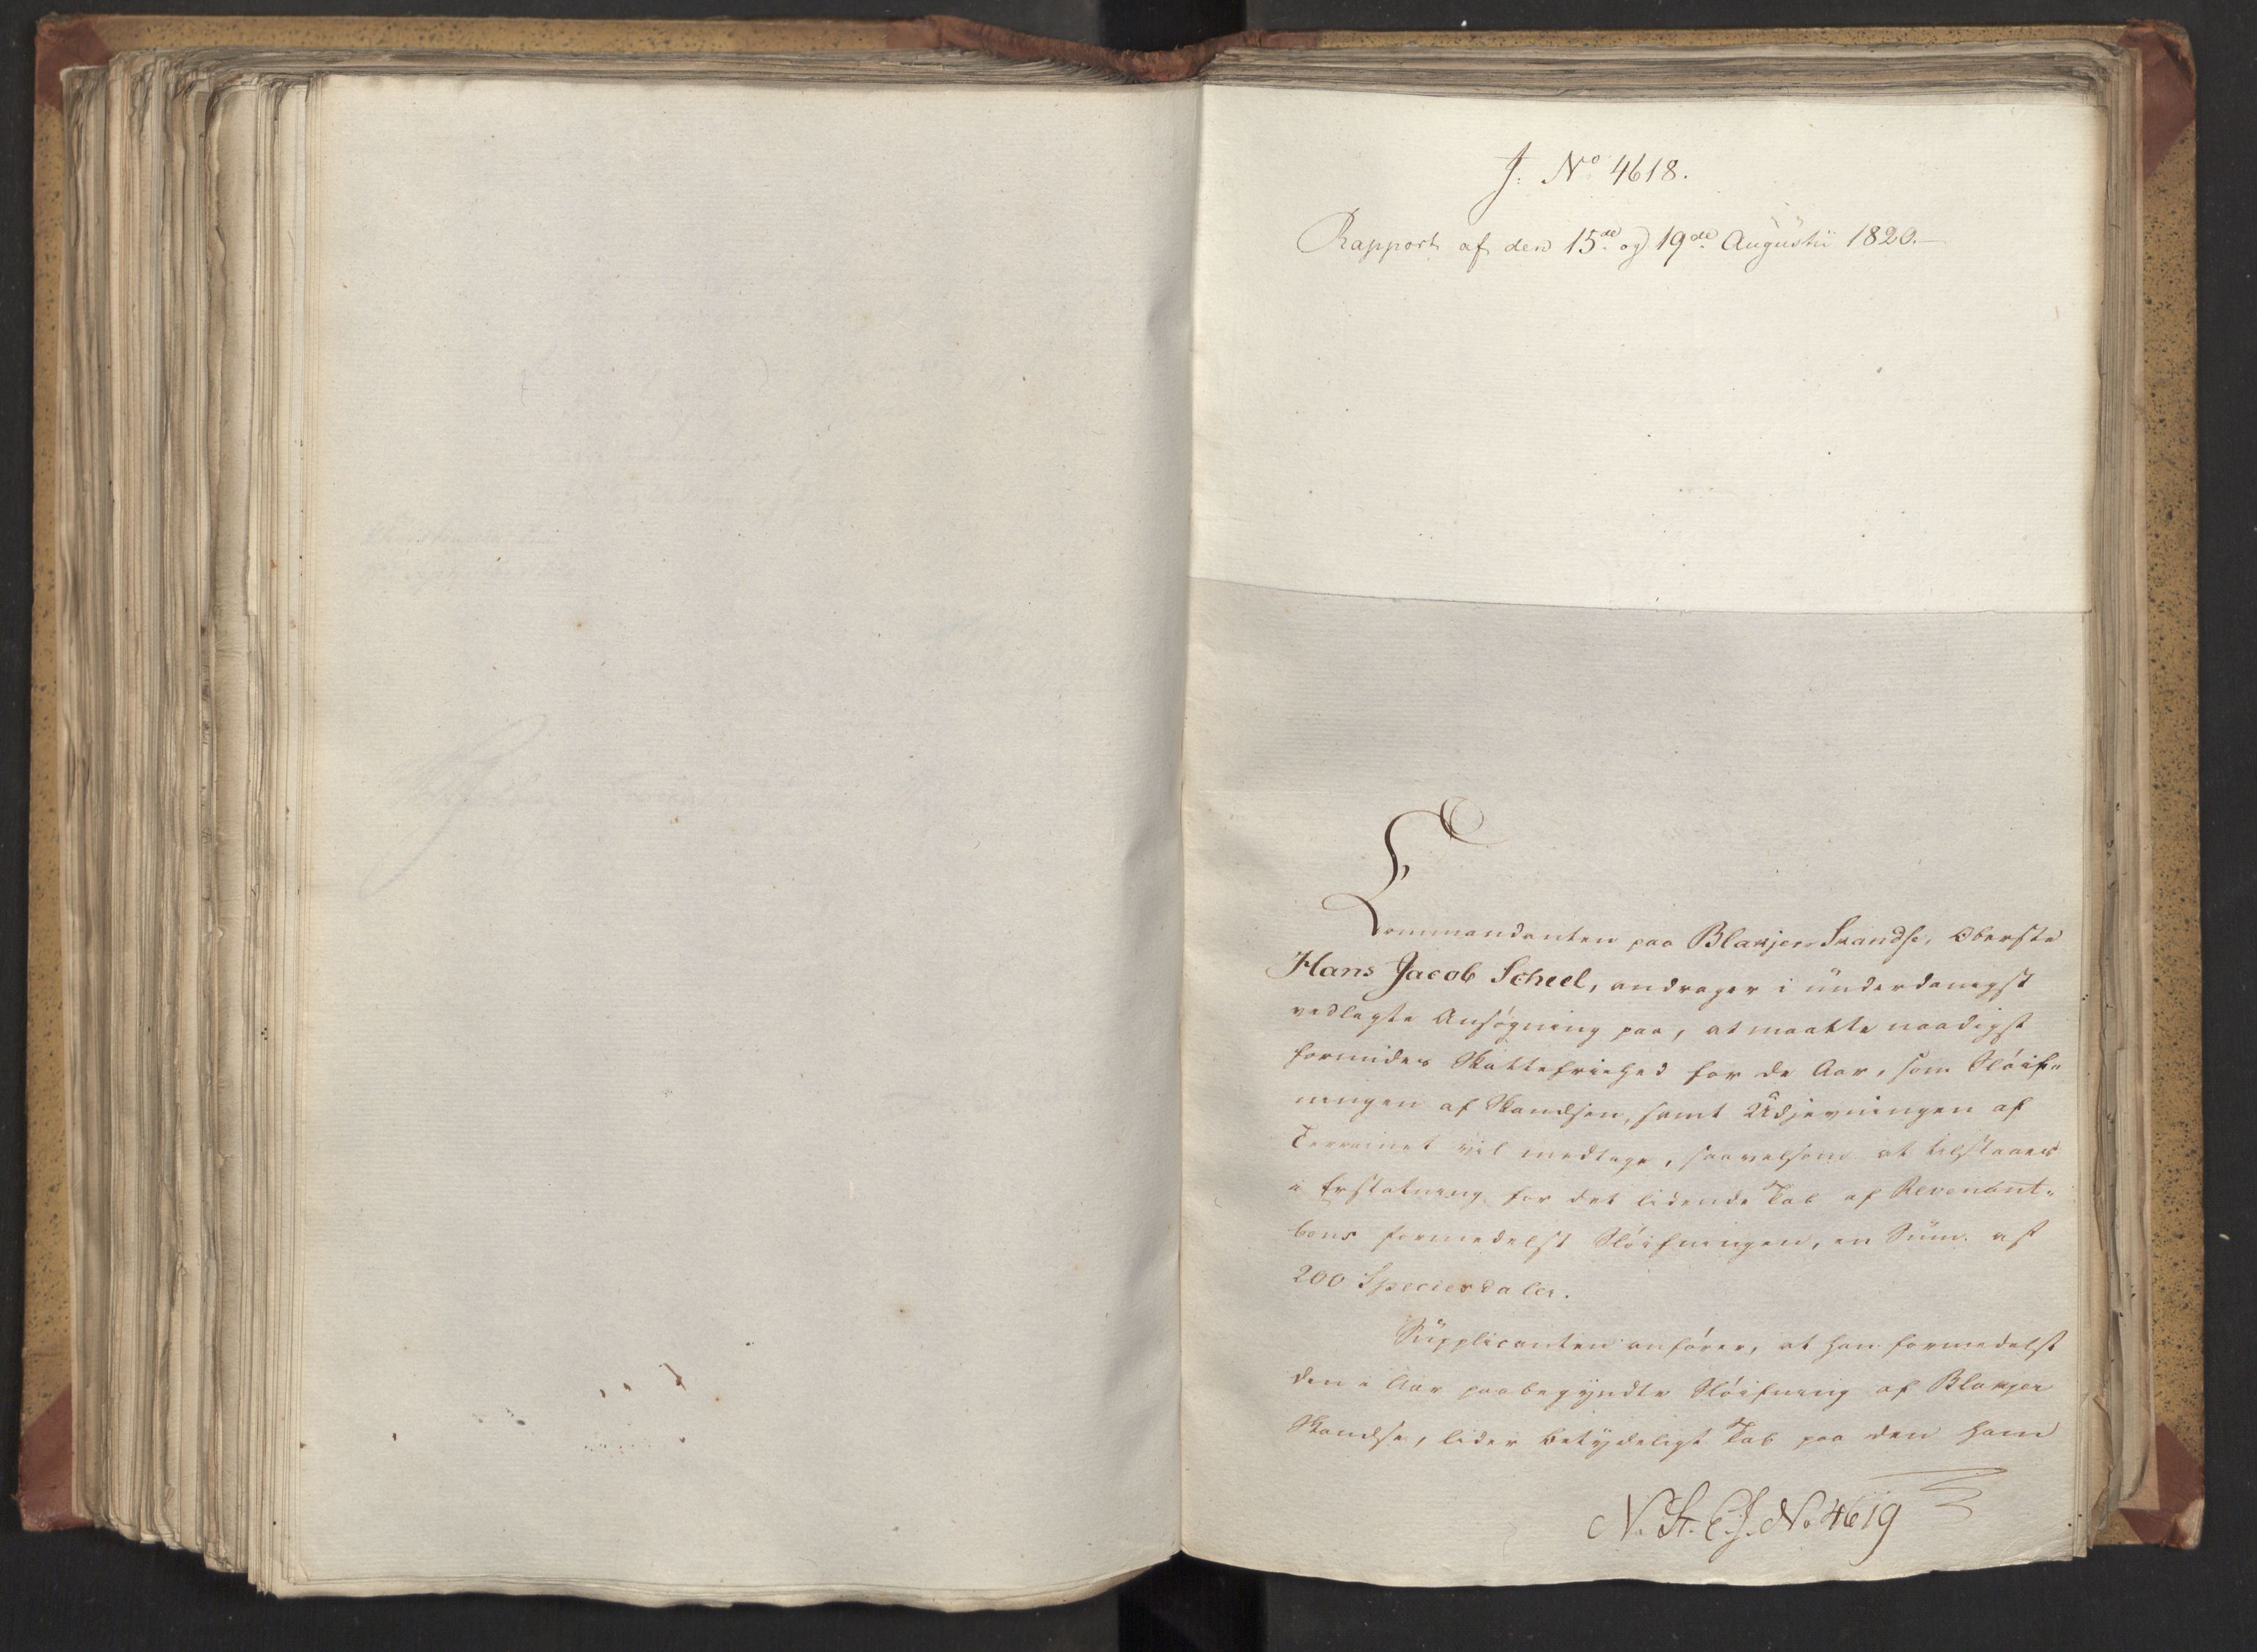 J. No 4618.
Rapport af den 15de og 19de Augustii 1820.
Commandanten paa Blakjer Skandse, Oberste
Hans Jacob Scheel, andrager i underdanigst
vedlagte Ansøgning paa, at maatte naadigst
forundes Skattefriehed for de Aar, som Sløif-
ningen af Skandsen, samt Udjevningen af
Terrainet vil medtage, saavelsom at tilstaaes
i Erstatning for det lidende Tab af
formedelst Sløifningen, en Sum af
200 Speciesdaler.
Supplicanten anfører, at han formedelst
den i Aar paabegyndte Sløifning af Blakjer
Skandse, lider betydeligt Tab paa den ham
N. St. C. J. No 4619